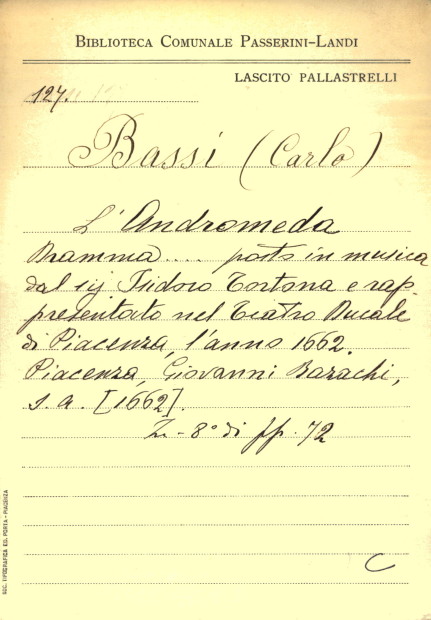 BIBLIOTECA COMUNALE PASSERINI-LANDI
LASCITO PALLASTRELLI
127.
Bassi (Carlo)
L'Andromeda
Dramma.... posto in musica
dal sig Isidoro Tortona e rap-
presentato nel Teatro Ducale
di Piacenza, l'anno 1662.
Piacenza, Giovanni Bazachi,
s. a. [1662].
in-8° di pp. 72
C
SOC. TIPOGRAFICA ED. PORTA - PIACENZA